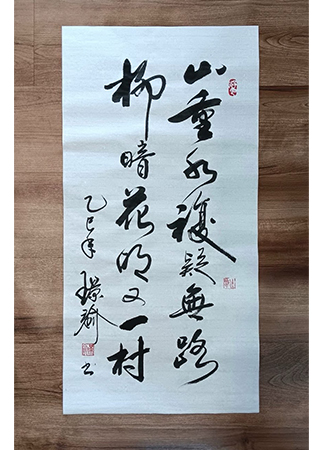 山重水複疑無路
柳暗花明又一村
乙巳年
书